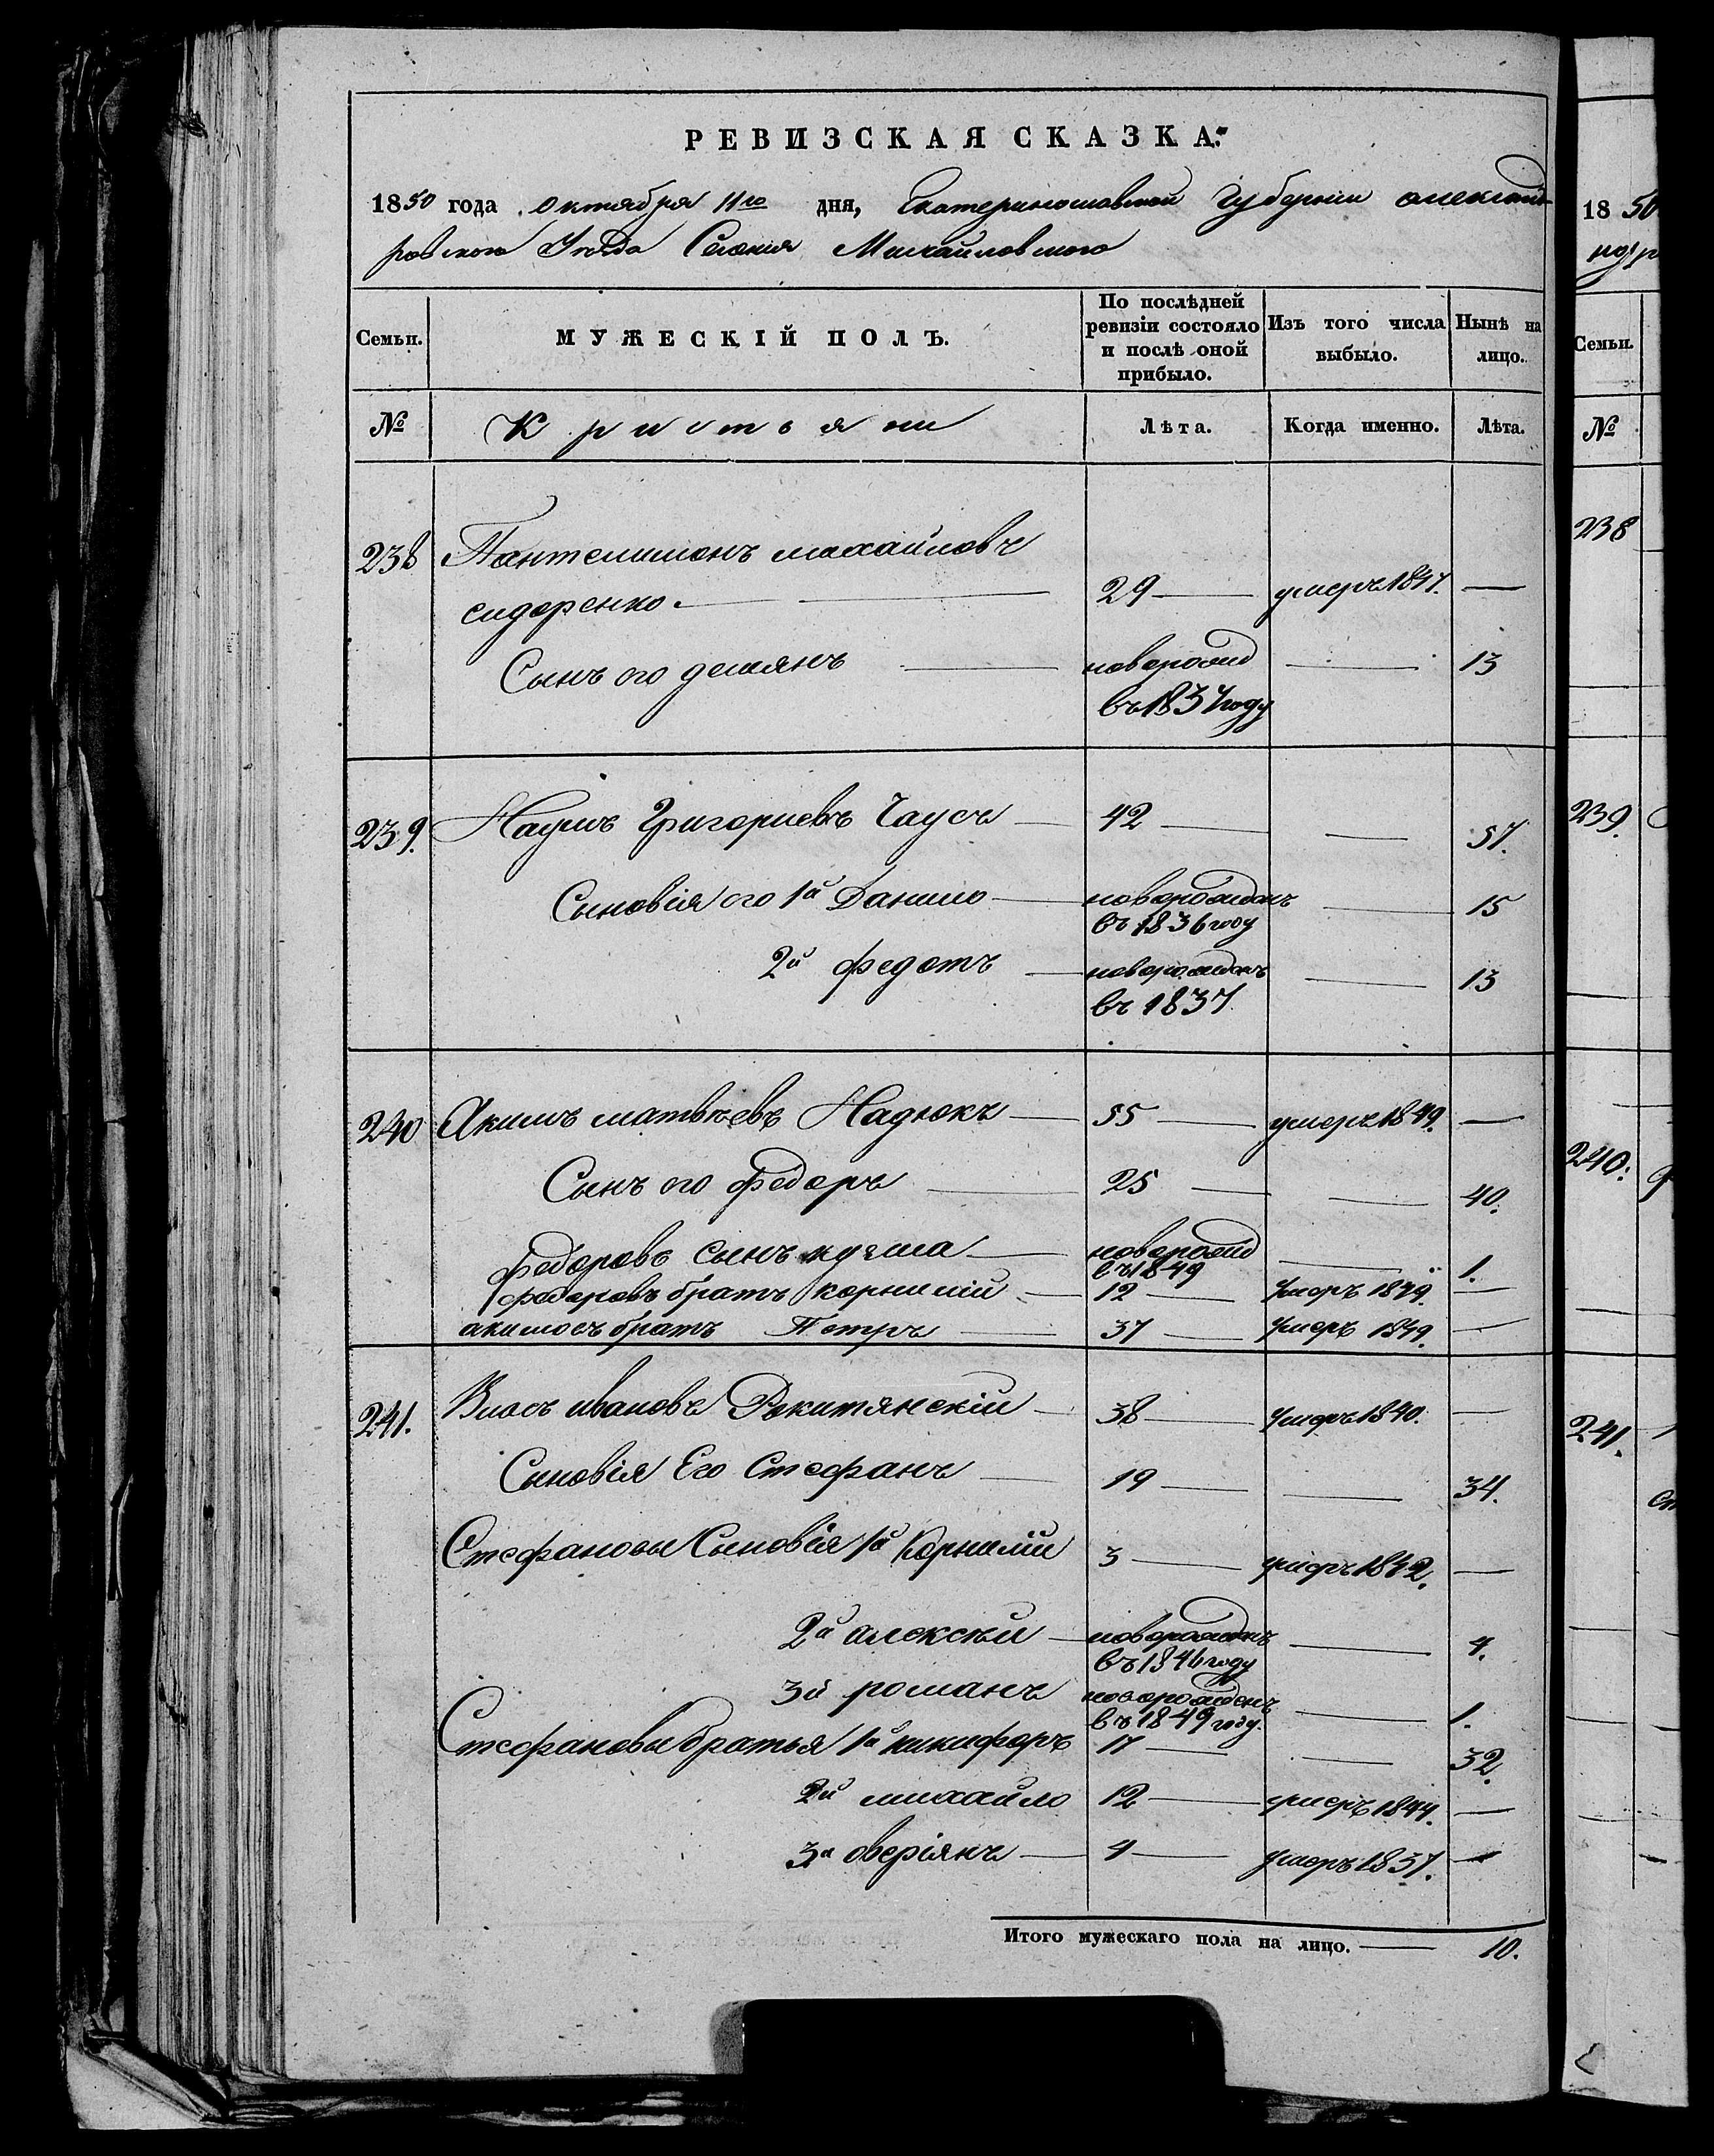 РЕВИЗСКАЯ СКАЗКА.
1850 года октября 11го дня, Екатеринославской Губернии александ-
ровского Уезда Селения Михайловского
Семьи.
МУЖЕСКІЙ ПОЛЪ.
По послѣдней ревизіи состояло и послѣ оной прибыло.
Изъ того числа выбыло.
Нынѣ на лицо.
№ Кристьяни Лѣта. Когда именно. Лѣта.
238 Пантелимонъ михайловъ
сидоренко. 29 умеръ 1847. —
Сынъ его демянъ новорожд 13
въ 1837 году
239. Наумъ Григориевъ Чаусъ 42 57.
Сыновія его 1й Данило новорожденъ 15
въ 1836 году
2й федотъ новорожденъ 13
въ 1837
240 Акимъ матвѣевъ Надюкъ 55 умеръ 1849. —
Сынъ его Федоръ 25 40.
Федоровъ сынъ кузма новорожд 1.
въ 1849
федоровъ братъ корнилій 12 умеръ 1849. —
акимовъ братъ Петръ 37 умеръ 1849. —
241. Власъ ивановъ Рокитянскій 38 умеръ 1840. —
Сыновія Его Стефанъ 19 34.
Стефановы Сыновія 1й Корнилій 3 умеръ 1842. —
2й алексѣй новорожденъ 4.
въ 1846 году
3й романъ новорожденъ 1.
въ 1849 году.
Стефановы братья 1й никифоръ 17 32.
2й михайло 12 умеръ 1844. —
3й оверіянъ 4 умеръ 1837. —
Итого мужескаго пола на лицо. — 10.
1850
Семьи.
№
238
239.
240.
241.